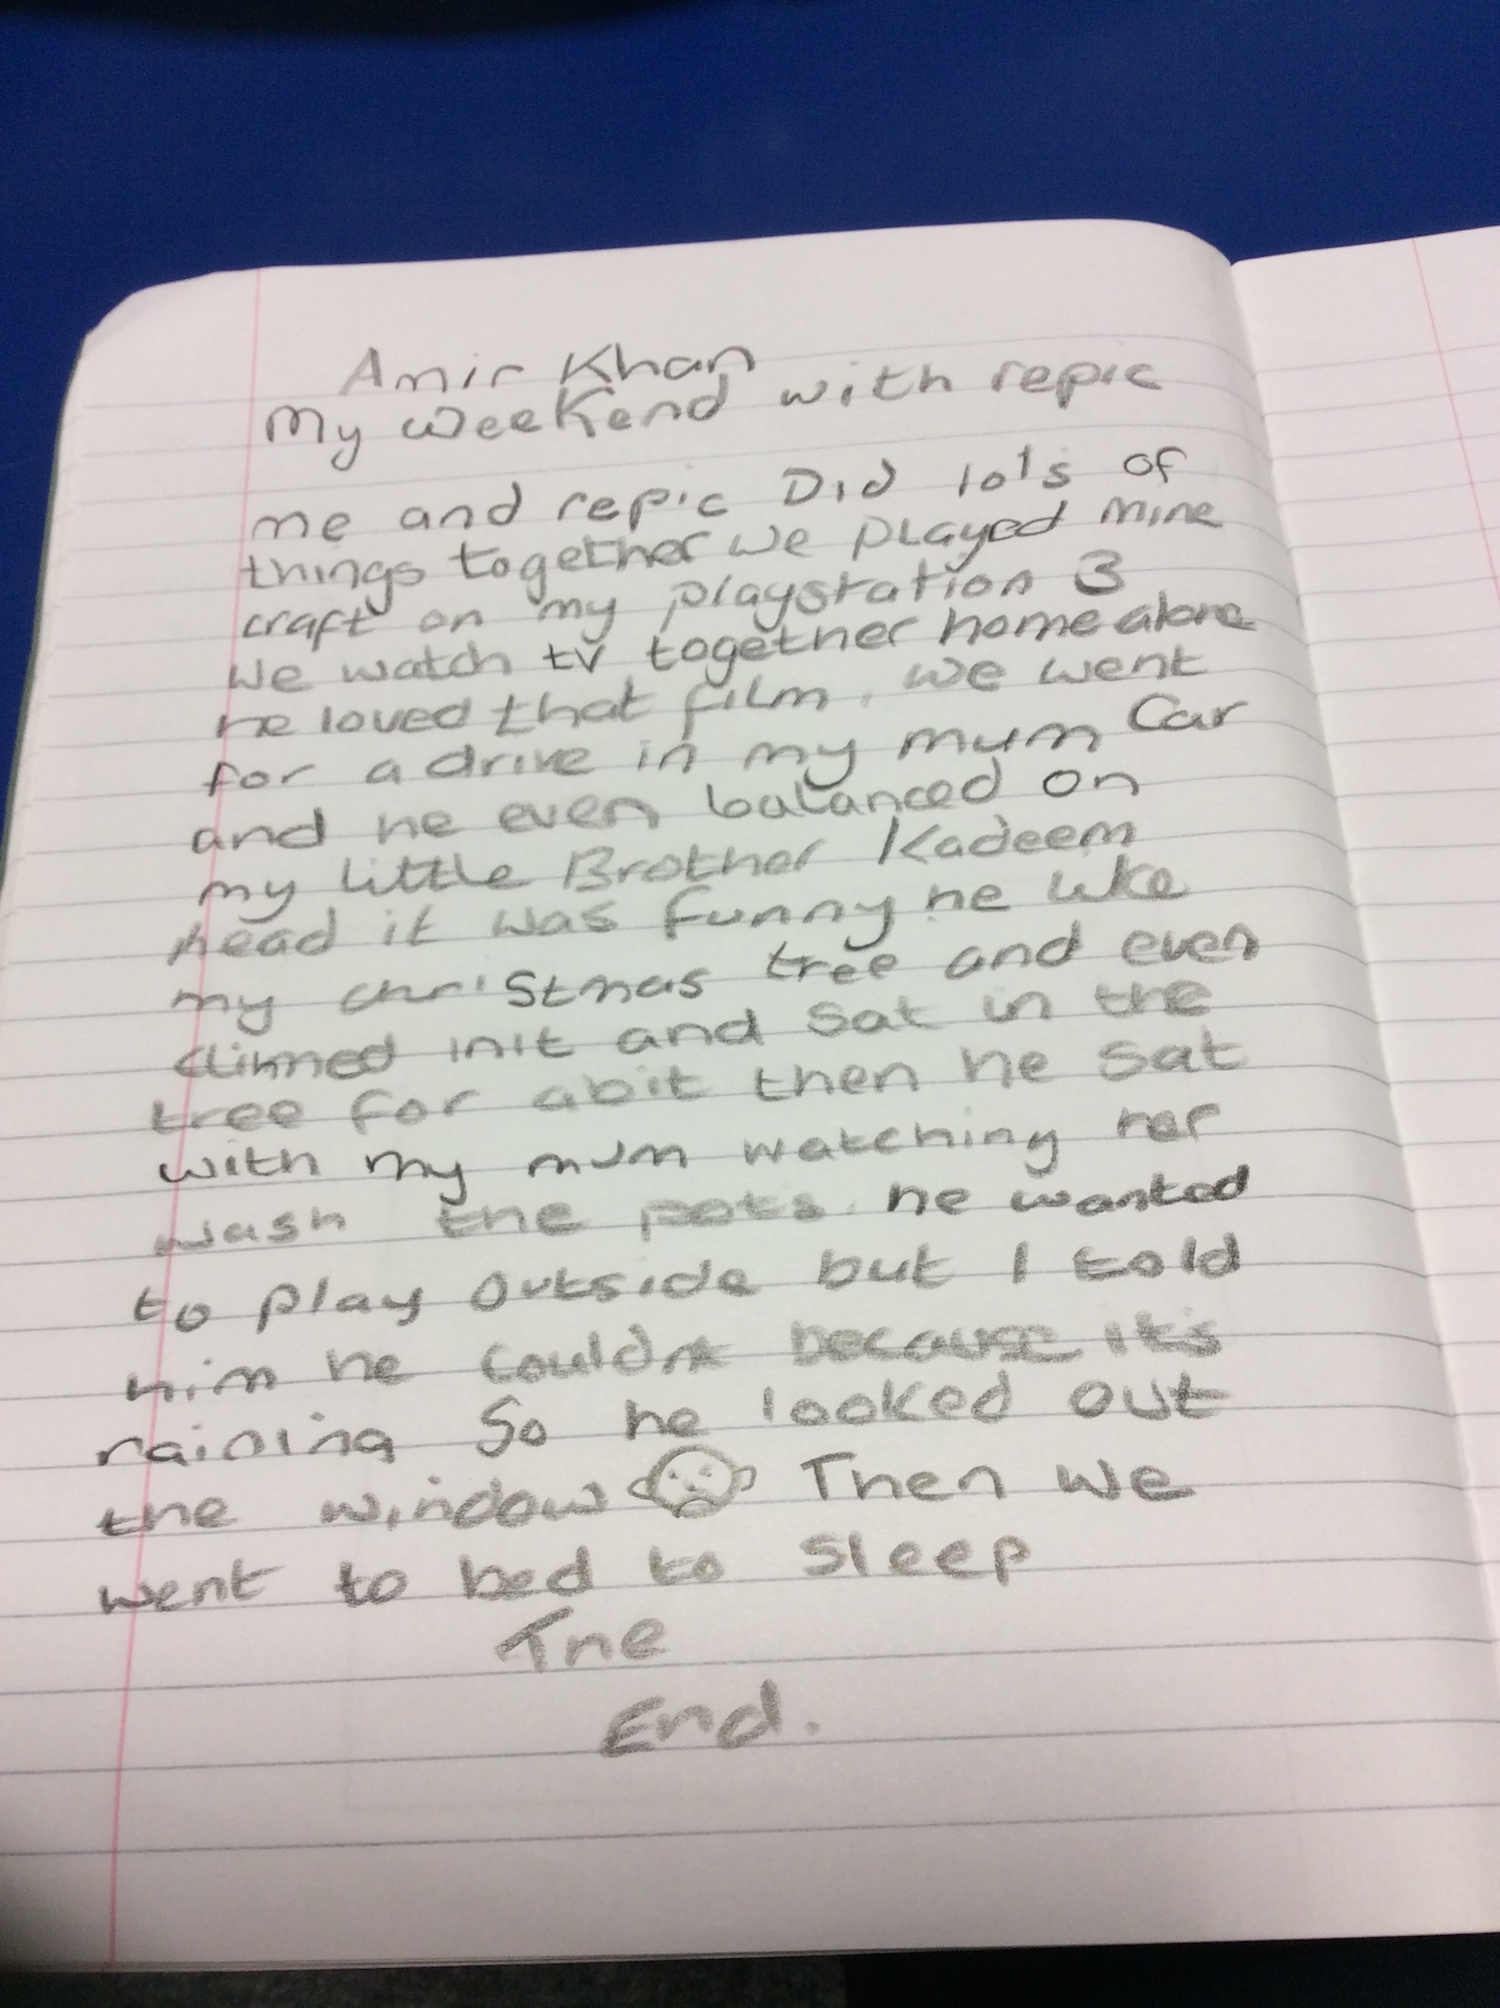 Amir Khan
My Weekend with repic
me and repic Did lots of
things together we played mine
craft on my playstation 3
We watch tv together home alone
he loved that film. we went
for a drive in my mum Car
and he even balanced on
my little Brother Kadeem
head it was funny he like
my christmas tree and even
climed init and sat in the
tree for abit then he sat
with my mum watching her
wash the pots. he wanted
to play outside but I told
him he couldnt because it's
raining So he looked out
the window Then we
went to bed to sleep
The
End.